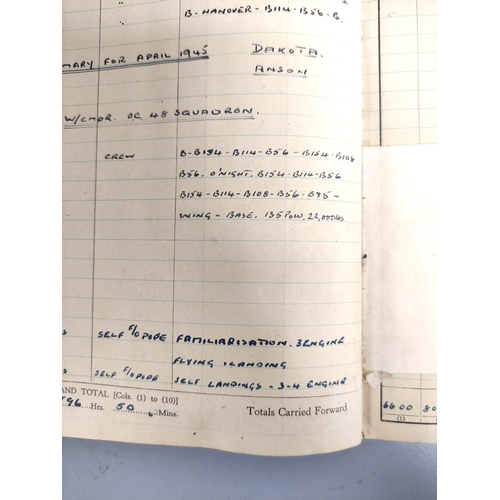 B-HANOVER-B114-B56-B.
MARY FOR APRIL 1945 DAKOTA.
ANSON
W/CMDR. OC 48 SQUADRON.
CREW B-B154-B114-B56-B154-B108
B56. O'NIGHT. B154-B114-B56
B154-B114-B108-B56-B75-
WING-BASE. 135 POW, 22,000 lbs
SELF F/O POPE FAMILIARISATION. 3 ENGINE
FLYING & LANDING
SELF F/O POPE SELF LANDINGS - 3-4 ENGINE
AND TOTAL [Cols. (1) to (10)]
Hrs. 50 Mins. Totals Carried Forward
6600 80
(1)